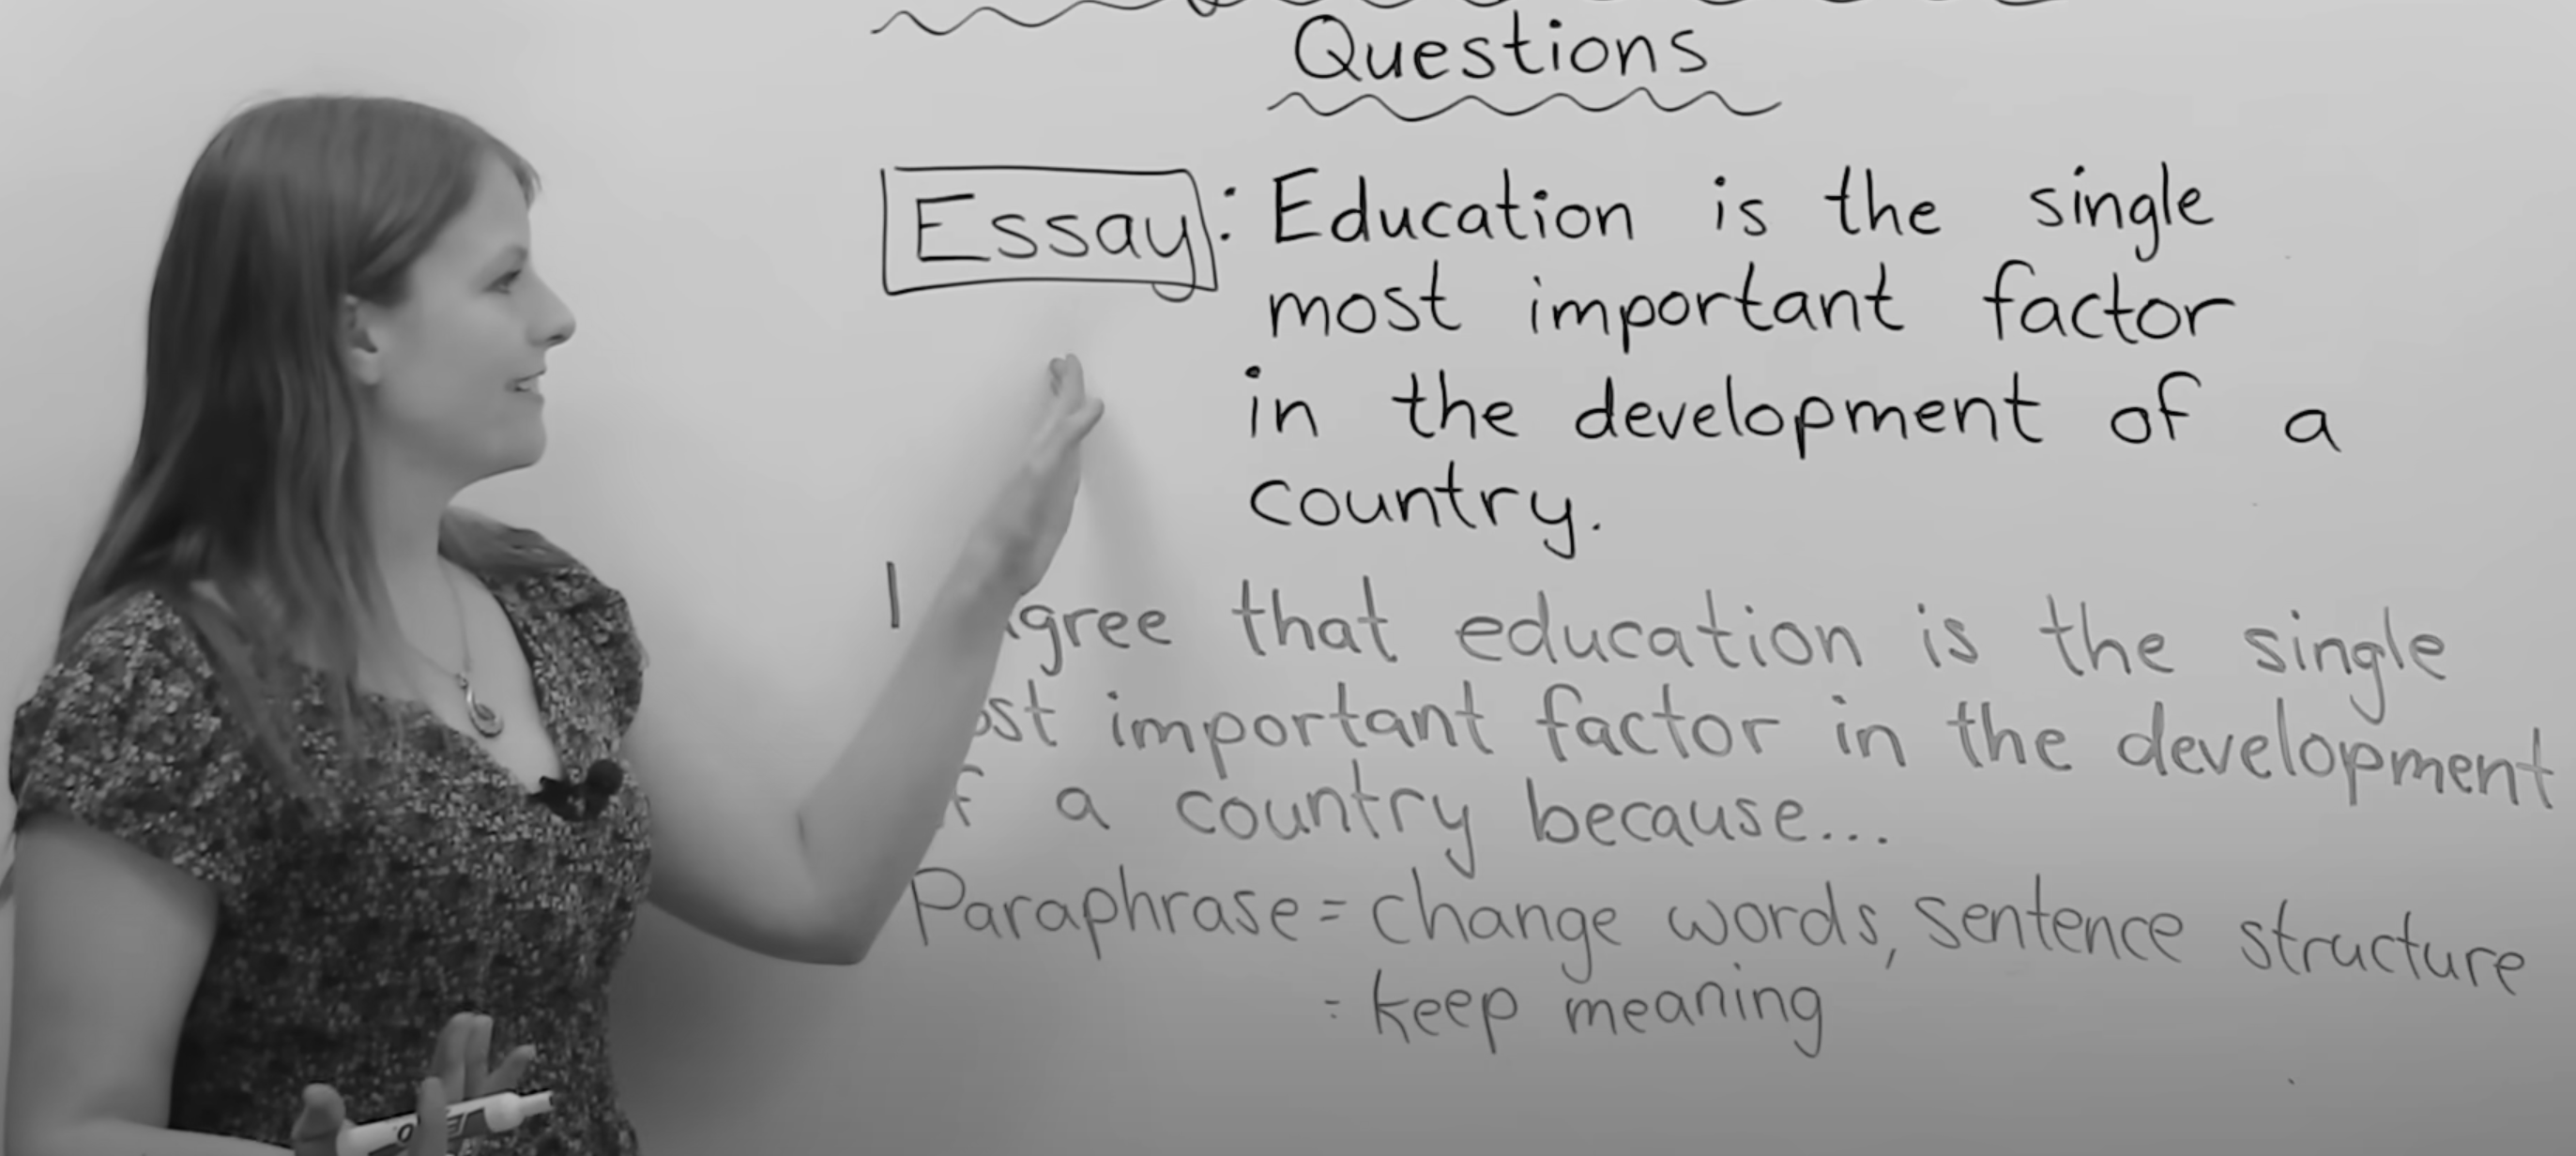 Questions
Essay: Education is the single
most important factor
in the development of a
country.
I gree that education is the single
st important factor in the development
f a country because...
Paraphrase = change words, sentence structure
= keep meaning